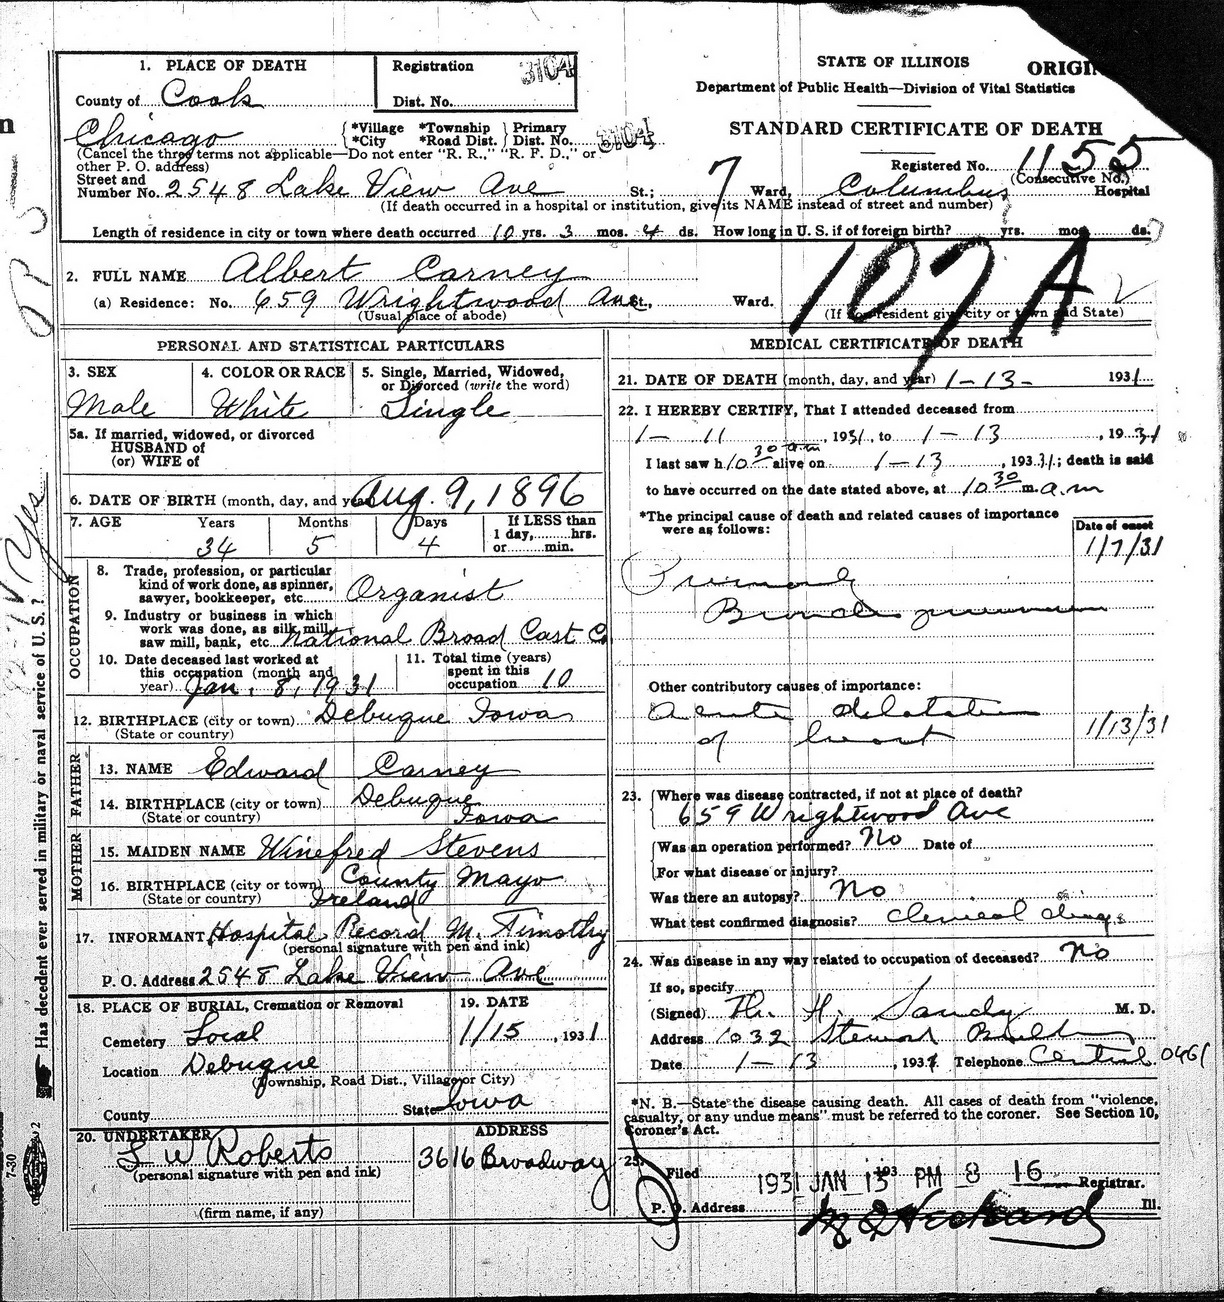 1. PLACE OF DEATH
County of Cook
Registration 3104
Dist. No.
STATE OF ILLINOIS
ORIGIN
Department of Public Health—Division of Vital Statistics
STANDARD CERTIFICATE OF DEATH
Chicago
*Village *Township Primary
*City *Road Dist. Dist. No. 3104
(Cancel the three terms not applicable—Do not enter "R. R.," "R. F. D.," or
other P. O. address)
Registered No. 1155
(Consecutive No.)
Street and
Number No. 2548 Lake View Ave St.; 7 Ward, Columbus Hospital
(If death occurred in a hospital or institution, give its NAME instead of street and number)
Length of residence in city or town where death occurred 10 yrs. 3 mos. 4 ds. How long in U. S. if of foreign birth? yrs. mos. ds.
107A
2. FULL NAME Albert Carney
(a) Residence: No. 659 Wrightwood Ave St., Ward.
(Usual place of abode)
(If nonresident give city or town and State)
PERSONAL AND STATISTICAL PARTICULARS
3. SEX
Male
4. COLOR OR RACE
White
5. Single, Married, Widowed,
or Divorced (write the word)
Single
5a. If married, widowed, or divorced
HUSBAND of
(or) WIFE of
6. DATE OF BIRTH (month, day, and year) Aug. 9, 1896
7. AGE Years Months Days If LESS than
1 day, hrs.
or min.
34 5 4
OCCUPATION
8. Trade, profession, or particular
kind of work done, as spinner,
sawyer, bookkeeper, etc. Organist
9. Industry or business in which
work was done, as silk mill,
saw mill, bank, etc. National Broad Cast Co
10. Date deceased last worked at
this occupation (month and
year) Jan. 8, 1931
11. Total time (years)
spent in this
occupation 10
12. BIRTHPLACE (city or town) Debuque Iowa
(State or country)
FATHER
13. NAME Edward Carney
14. BIRTHPLACE (city or town) Debuque
(State or country) Iowa
MOTHER
15. MAIDEN NAME Winefred Stevens
16. BIRTHPLACE (city or town) County Mayo
(State or country) Ireland
17. INFORMANT Hospital Record M. Timothy
(personal signature with pen and ink)
P. O. Address 2548 Lake View Ave
18. PLACE OF BURIAL, Cremation or Removal
Cemetery Local
Location Debuque
(Township, Road Dist., Village or City)
County State Iowa
19. DATE
1/15, 1931
20. UNDERTAKER
L W Roberts
(personal signature with pen and ink)
(firm name, if any)
ADDRESS
3616 Broadway
MEDICAL CERTIFICATE OF DEATH
21. DATE OF DEATH (month, day, and year) 1-13- 1931
22. I HEREBY CERTIFY, That I attended deceased from
1- 11, 1931, to 1-13, 1931
I last saw h 10 30 a.m alive on 1-13, 1931; death is said
to have occurred on the date stated above, at 10 30 m. a.m
*The principal cause of death and related causes of importance
were as follows:
Date of onset
1/7/31
Primary
Broncho pneumonia
Other contributory causes of importance:
Acute dilatation
of heart
1/13/31
23. Where was disease contracted, if not at place of death?
659 Wrightwood Ave
Was an operation performed? No Date of
For what disease or injury?
Was there an autopsy? No
What test confirmed diagnosis? Clinical diag.
24. Was disease in any way related to occupation of deceased? No
If so, specify
(Signed) Th. H. Sandy M. D.
Address 1032 Stewart Building
Date 1-13, 1931 Telephone Central 0461
*N. B.—State the disease causing death. All cases of death from "violence,
casualty, or any undue means" must be referred to the coroner. See Section 10,
Coroner's Act.
25.
Filed 1931 JAN 13 PM 8 16 Registrar.
P. O. Address Ill.
Has decedent ever served in military or naval service of U. S.? Yes
7-30